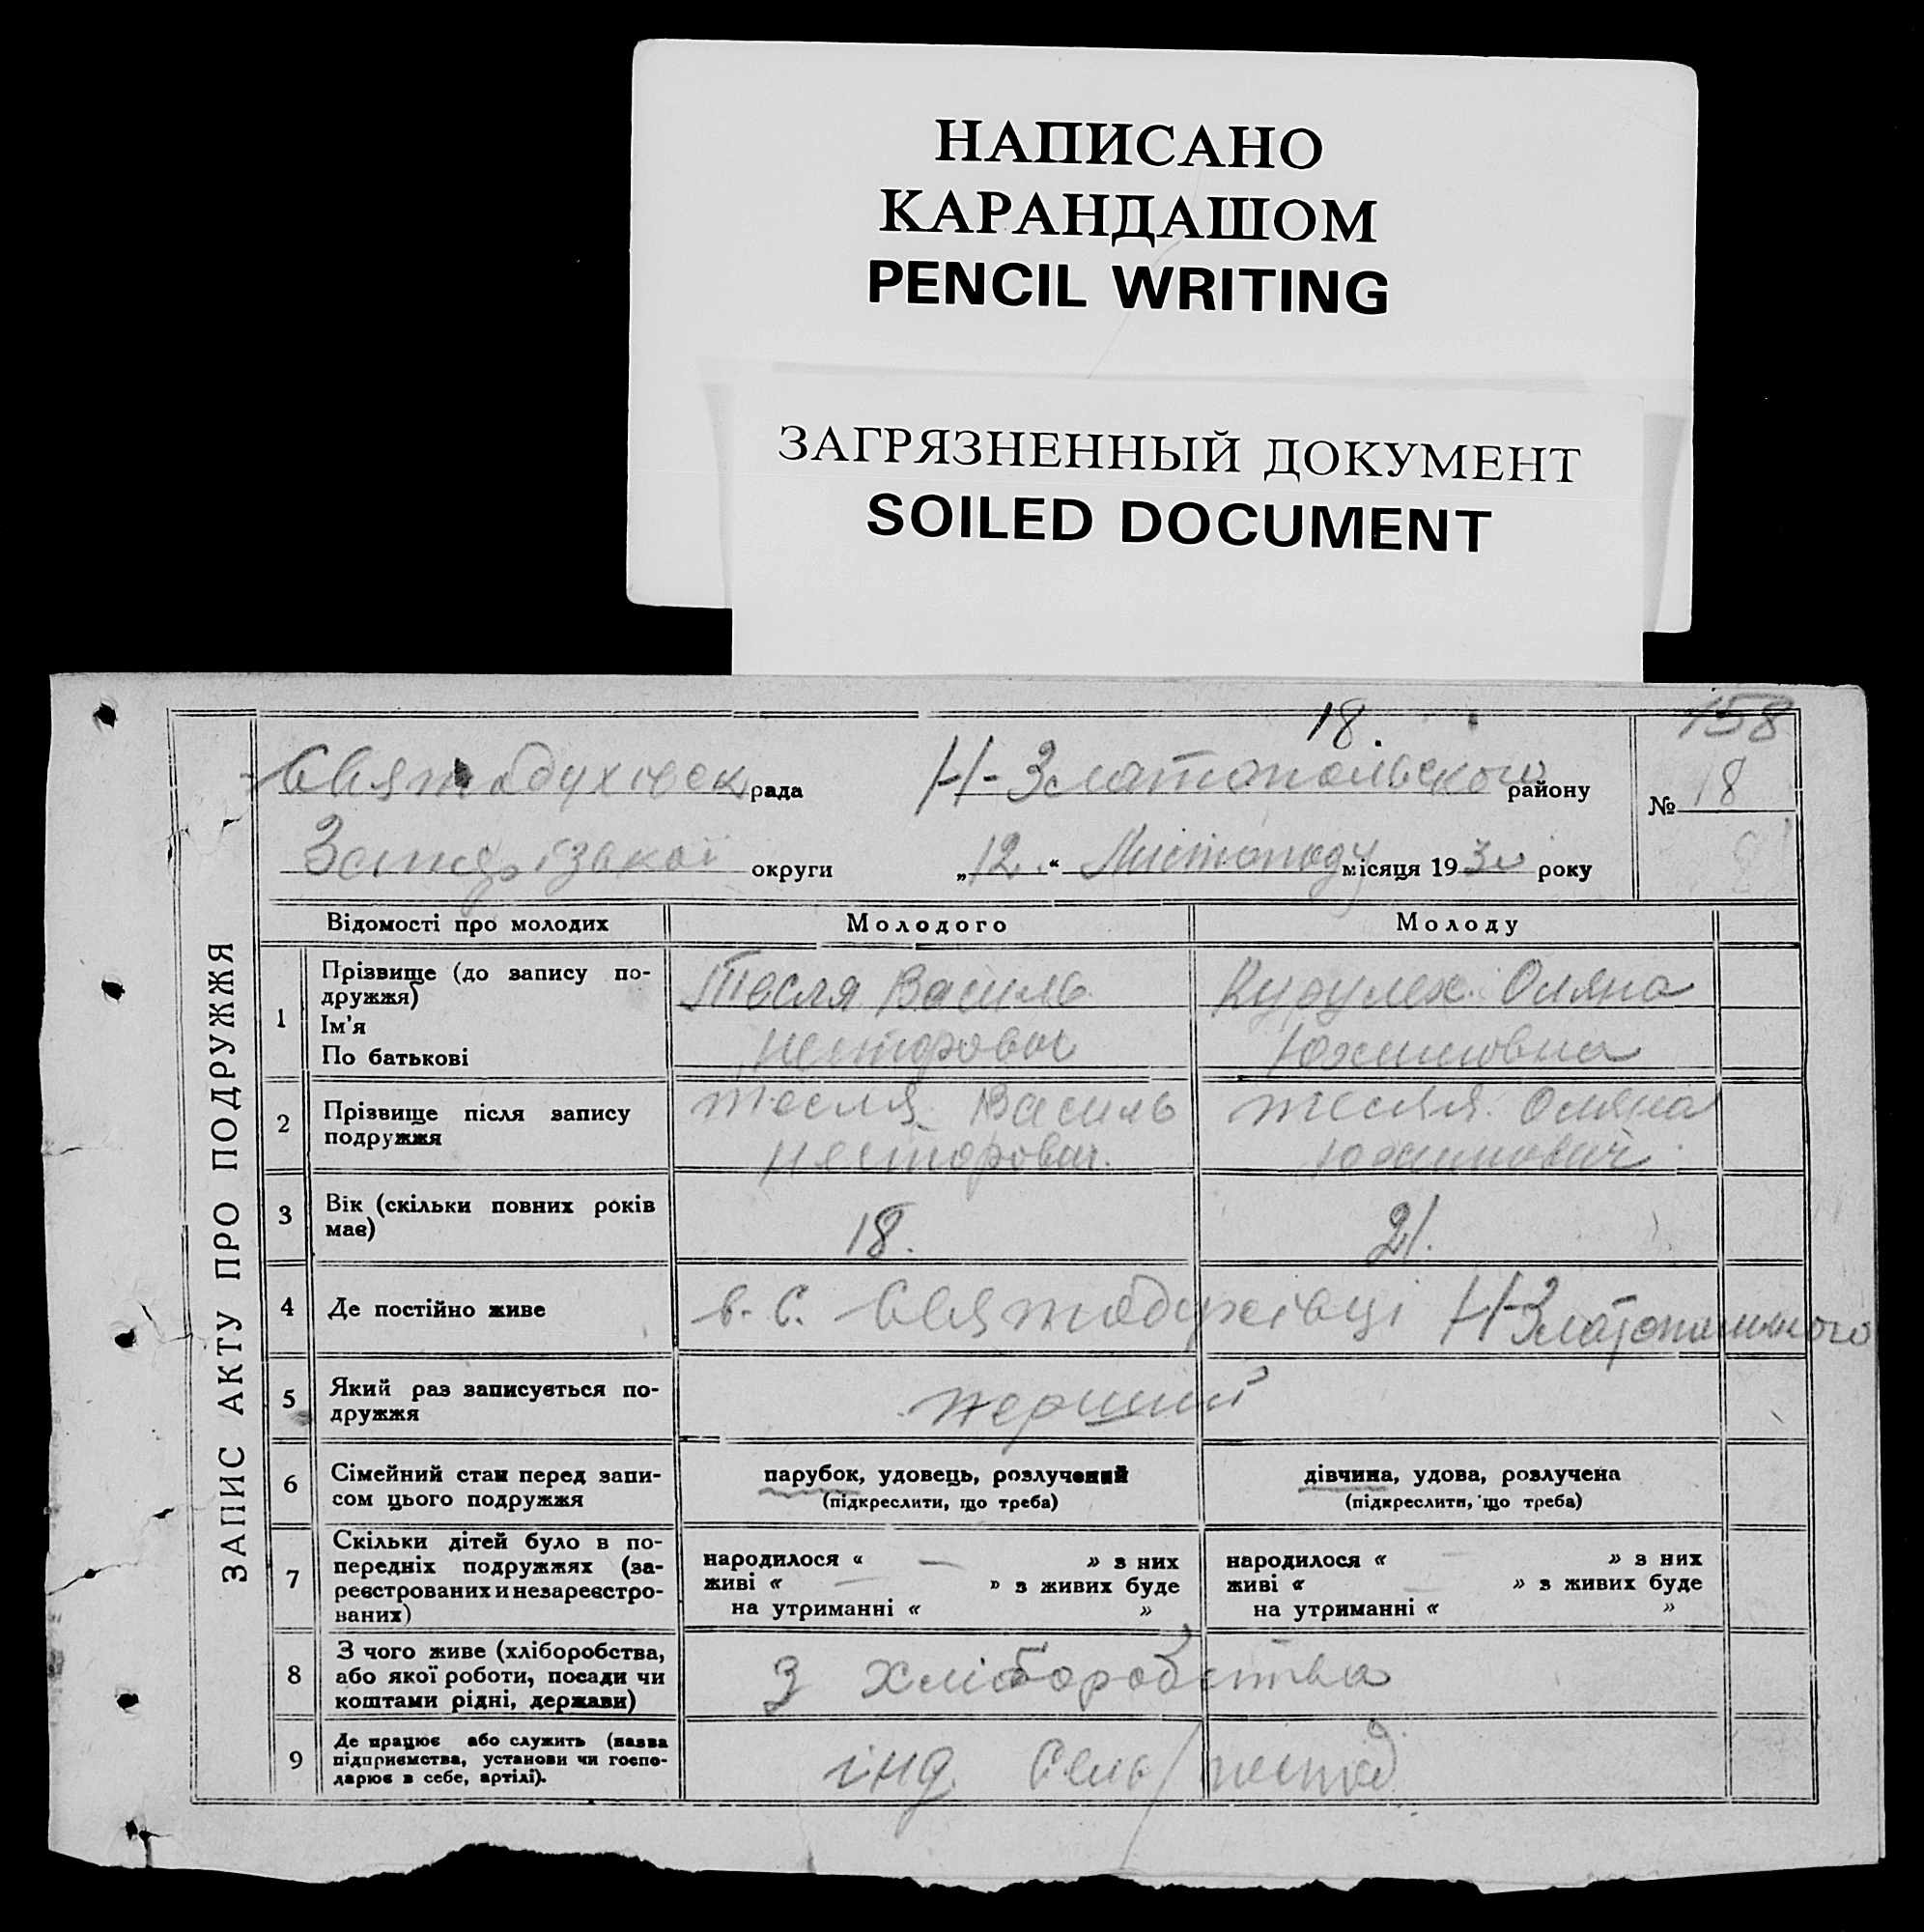 НАПИСАНО
КАРАНДАШОМ
PENCIL WRITING
ЗАГРЯЗНЕННЫЙ ДОКУМЕНТ
SOILED DOCUMENT
18.
158
рада Н-Златопольского району
№ 18
округи „12.“ Листопаду місяця 1930 року
ЗАПИС АКТУ ПРО ПОДРУЖЖЯ
Відомості про молодих Молодого Молоду
1 Прізвище (до запису по-
дружжя)
Ім'я
По батькові
Тесля Василь
Несторович
Оляна
2 Прізвище після запису
подружжя
Тесля Василь
Несторович.
Тесля Оляна
3 Вік (скільки повних років
має)
18.
21.
4 Де постійно живе
в. с. Святодухівці
5 Який раз записується по-
дружжя
перший
6 Сімейний стан перед запи-
сом цього подружжя
парубок, удовець, розлучений
(підкреслити, що треба)
дівчина, удова, розлучена
(підкреслити, що треба)
7 Скільки дітей було в по-
передніх подружжях (за-
реєстрованих и незареєстро-
ваних)
народилося « — » з них
живі « — » з живих буде
на утриманні « »
народилося « — » з них
живі « — » з живих буде
на утриманні « »
8 З чого живе (хліборобства,
або якої роботи, посади чи
коштами рідні, держави)
З хліборобства
9 Де працює або служить (назва
підприємства, установи чи госпо-
дарює в себе, артілі).
інд.